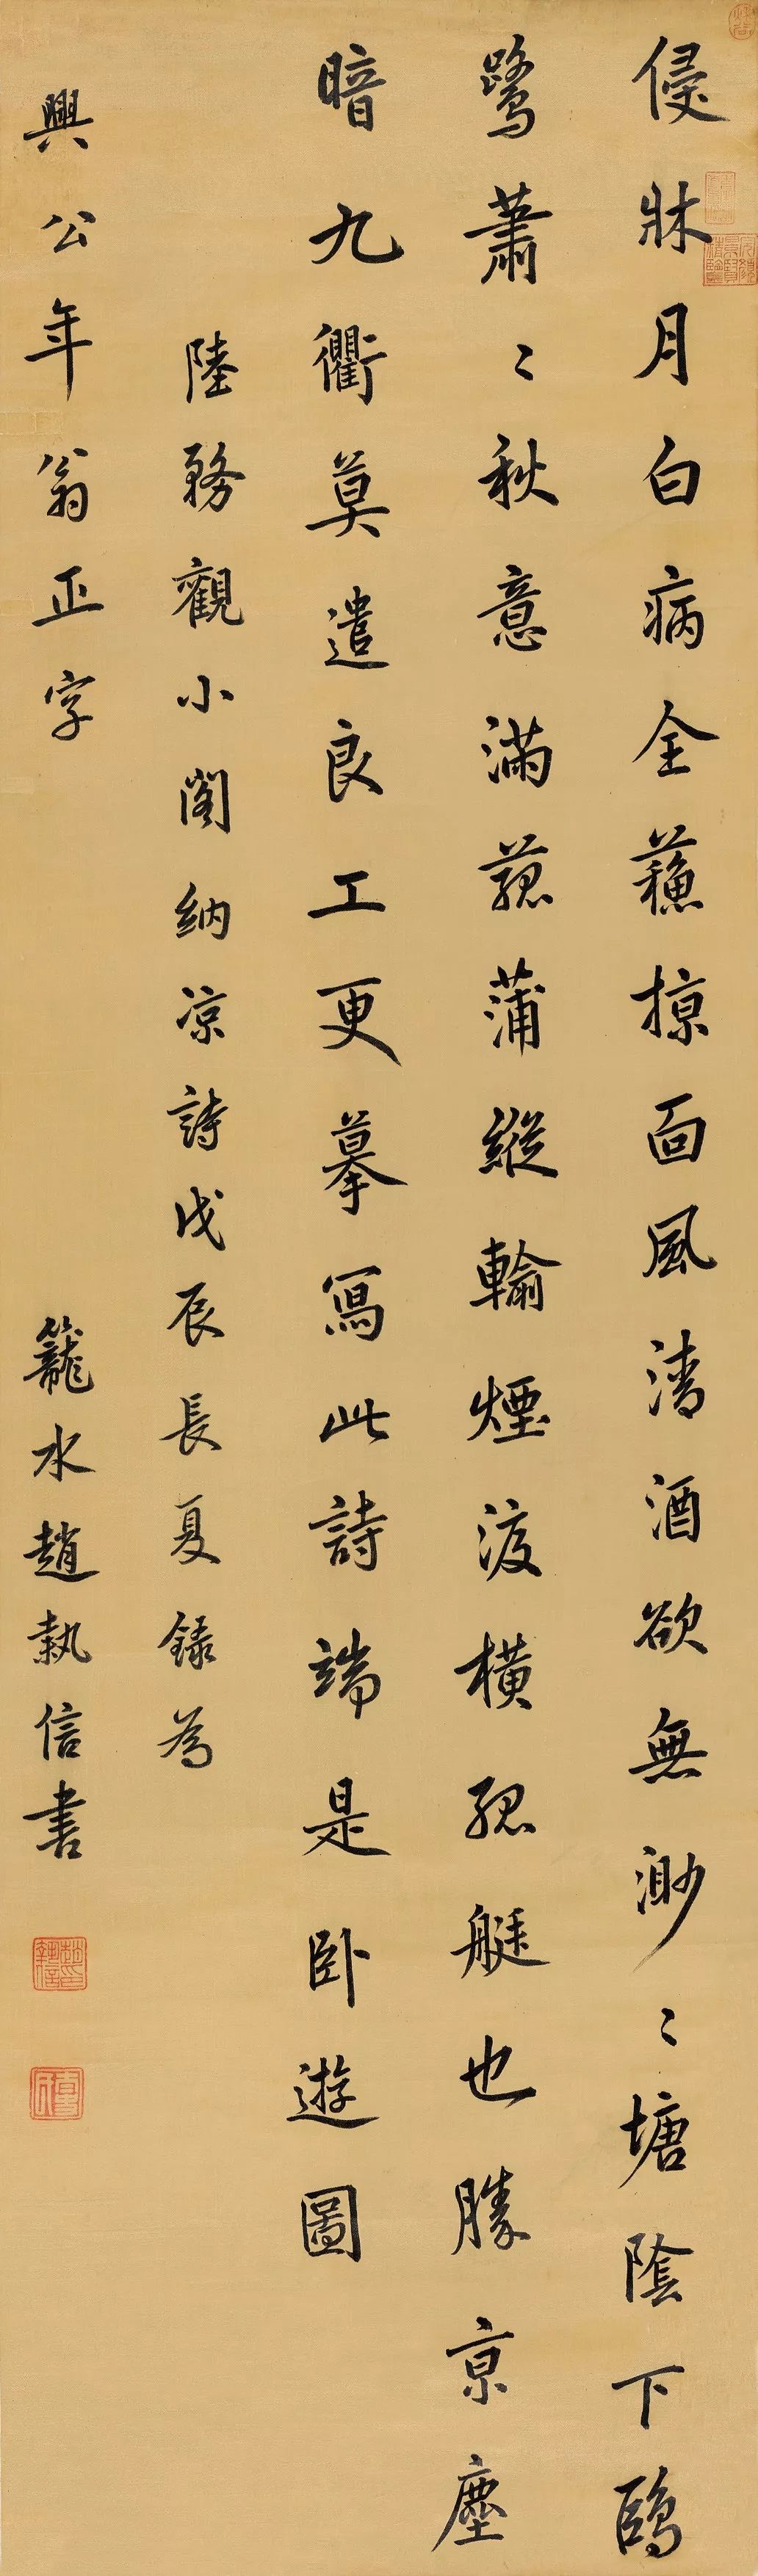 侵牀月白病全蘓掠面風清酒欲無渺〻塘陰下鷗
鷺蕭〻秋意滿菰蒲縱輸煙渡橫孤艇也勝京塵
暗九衢莫遣良工更摹寫此詩端是卧遊圖
陸務觀小閣納涼詩戊辰長夏録為
興公年翁正字
籠水趙執信書
趙執信印